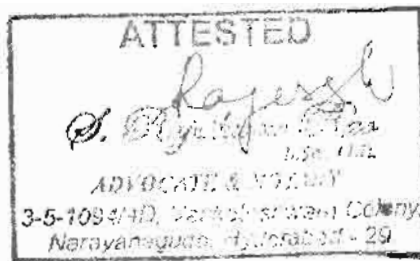 ATTESTED
Rajesh
S.
ADVOCATE & NOTARY
3-5-1094/4D, Venkateswara Colony,
Narayanaguda, Hyderabad - 29